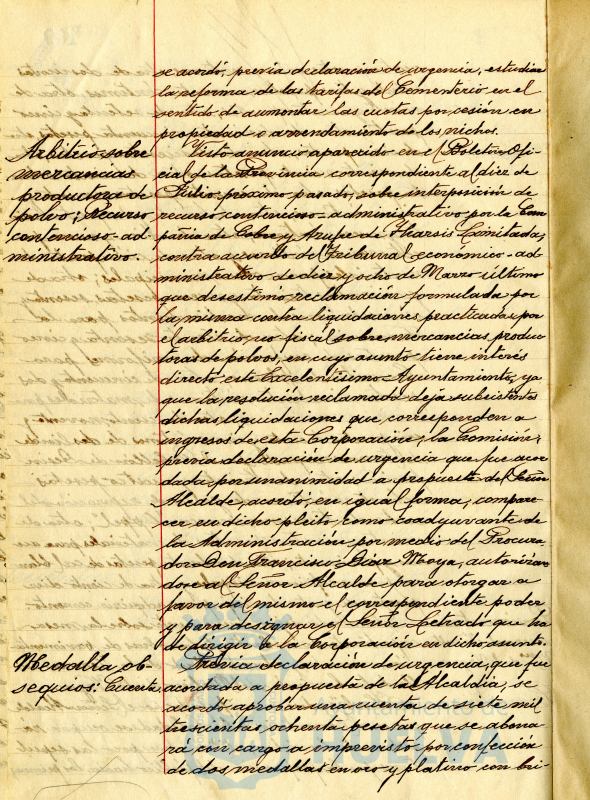 se acordó, previa declaración de urgencia, estudiar
la reforma de las tarifas del Cementerio en el
sentido de aumentar las cuotas por cesión en
propiedad o arrendamiento de los nichos.
Arbitrio sobre
mercancias
productora de
polvo; recurso
contencioso-ad-
ministrativo.
Visto anuncio aparecido en el Boletin Ofi-
cial de la Provincia correspondiente al diez de
Julio próximo pasado, sobre interposición de
recurso contencioso-administrativo por la Com
pañia de Cobre y Azufre de Tharsis Limitada,
contra acuerdo del Tribunal económico-ad-
ministrativo de diez y ocho de Marzo último
que desestimó reclamación formulada por
la misma contra liquidaciones practicadas por
el arbitrio no fiscal sobre mercancias produc
toras de polvos, en cuyo asunto tiene interés
directo este Excelentísimo Ayuntamiento, ya
que la resolución reclamada deja subsistentes
dichas liquidaciones que corresponden a
ingresos de esta Corporación, la Comisión,
previa declaración de urgencia que fue acor
dada por unanimidad a propuesta del Señor
Alcalde, acordó, en igual forma, compare
cer en dicho pleito como coadyuvante de
la Administración por medio del Procura
dor Don Francisco Díaz Moya, autorizan
dose al Señor Alcalde para otorgar a
favor del mismo el correspondiente poder
y para designar el Señor Letrado que ha
de dirigir a la Corporación en dicho asunto.
Medalla ob-
sequios: Cuenta
Previa declaración de urgencia, que fue
acordada a propuesta de la Alcaldía, se
acordó aprobar una cuenta de siete mil
trescientas ochenta pesetas que se abona
rá con cargo a imprevisto por confección
de dos medallas en oro y platino con bri-
HUELVA